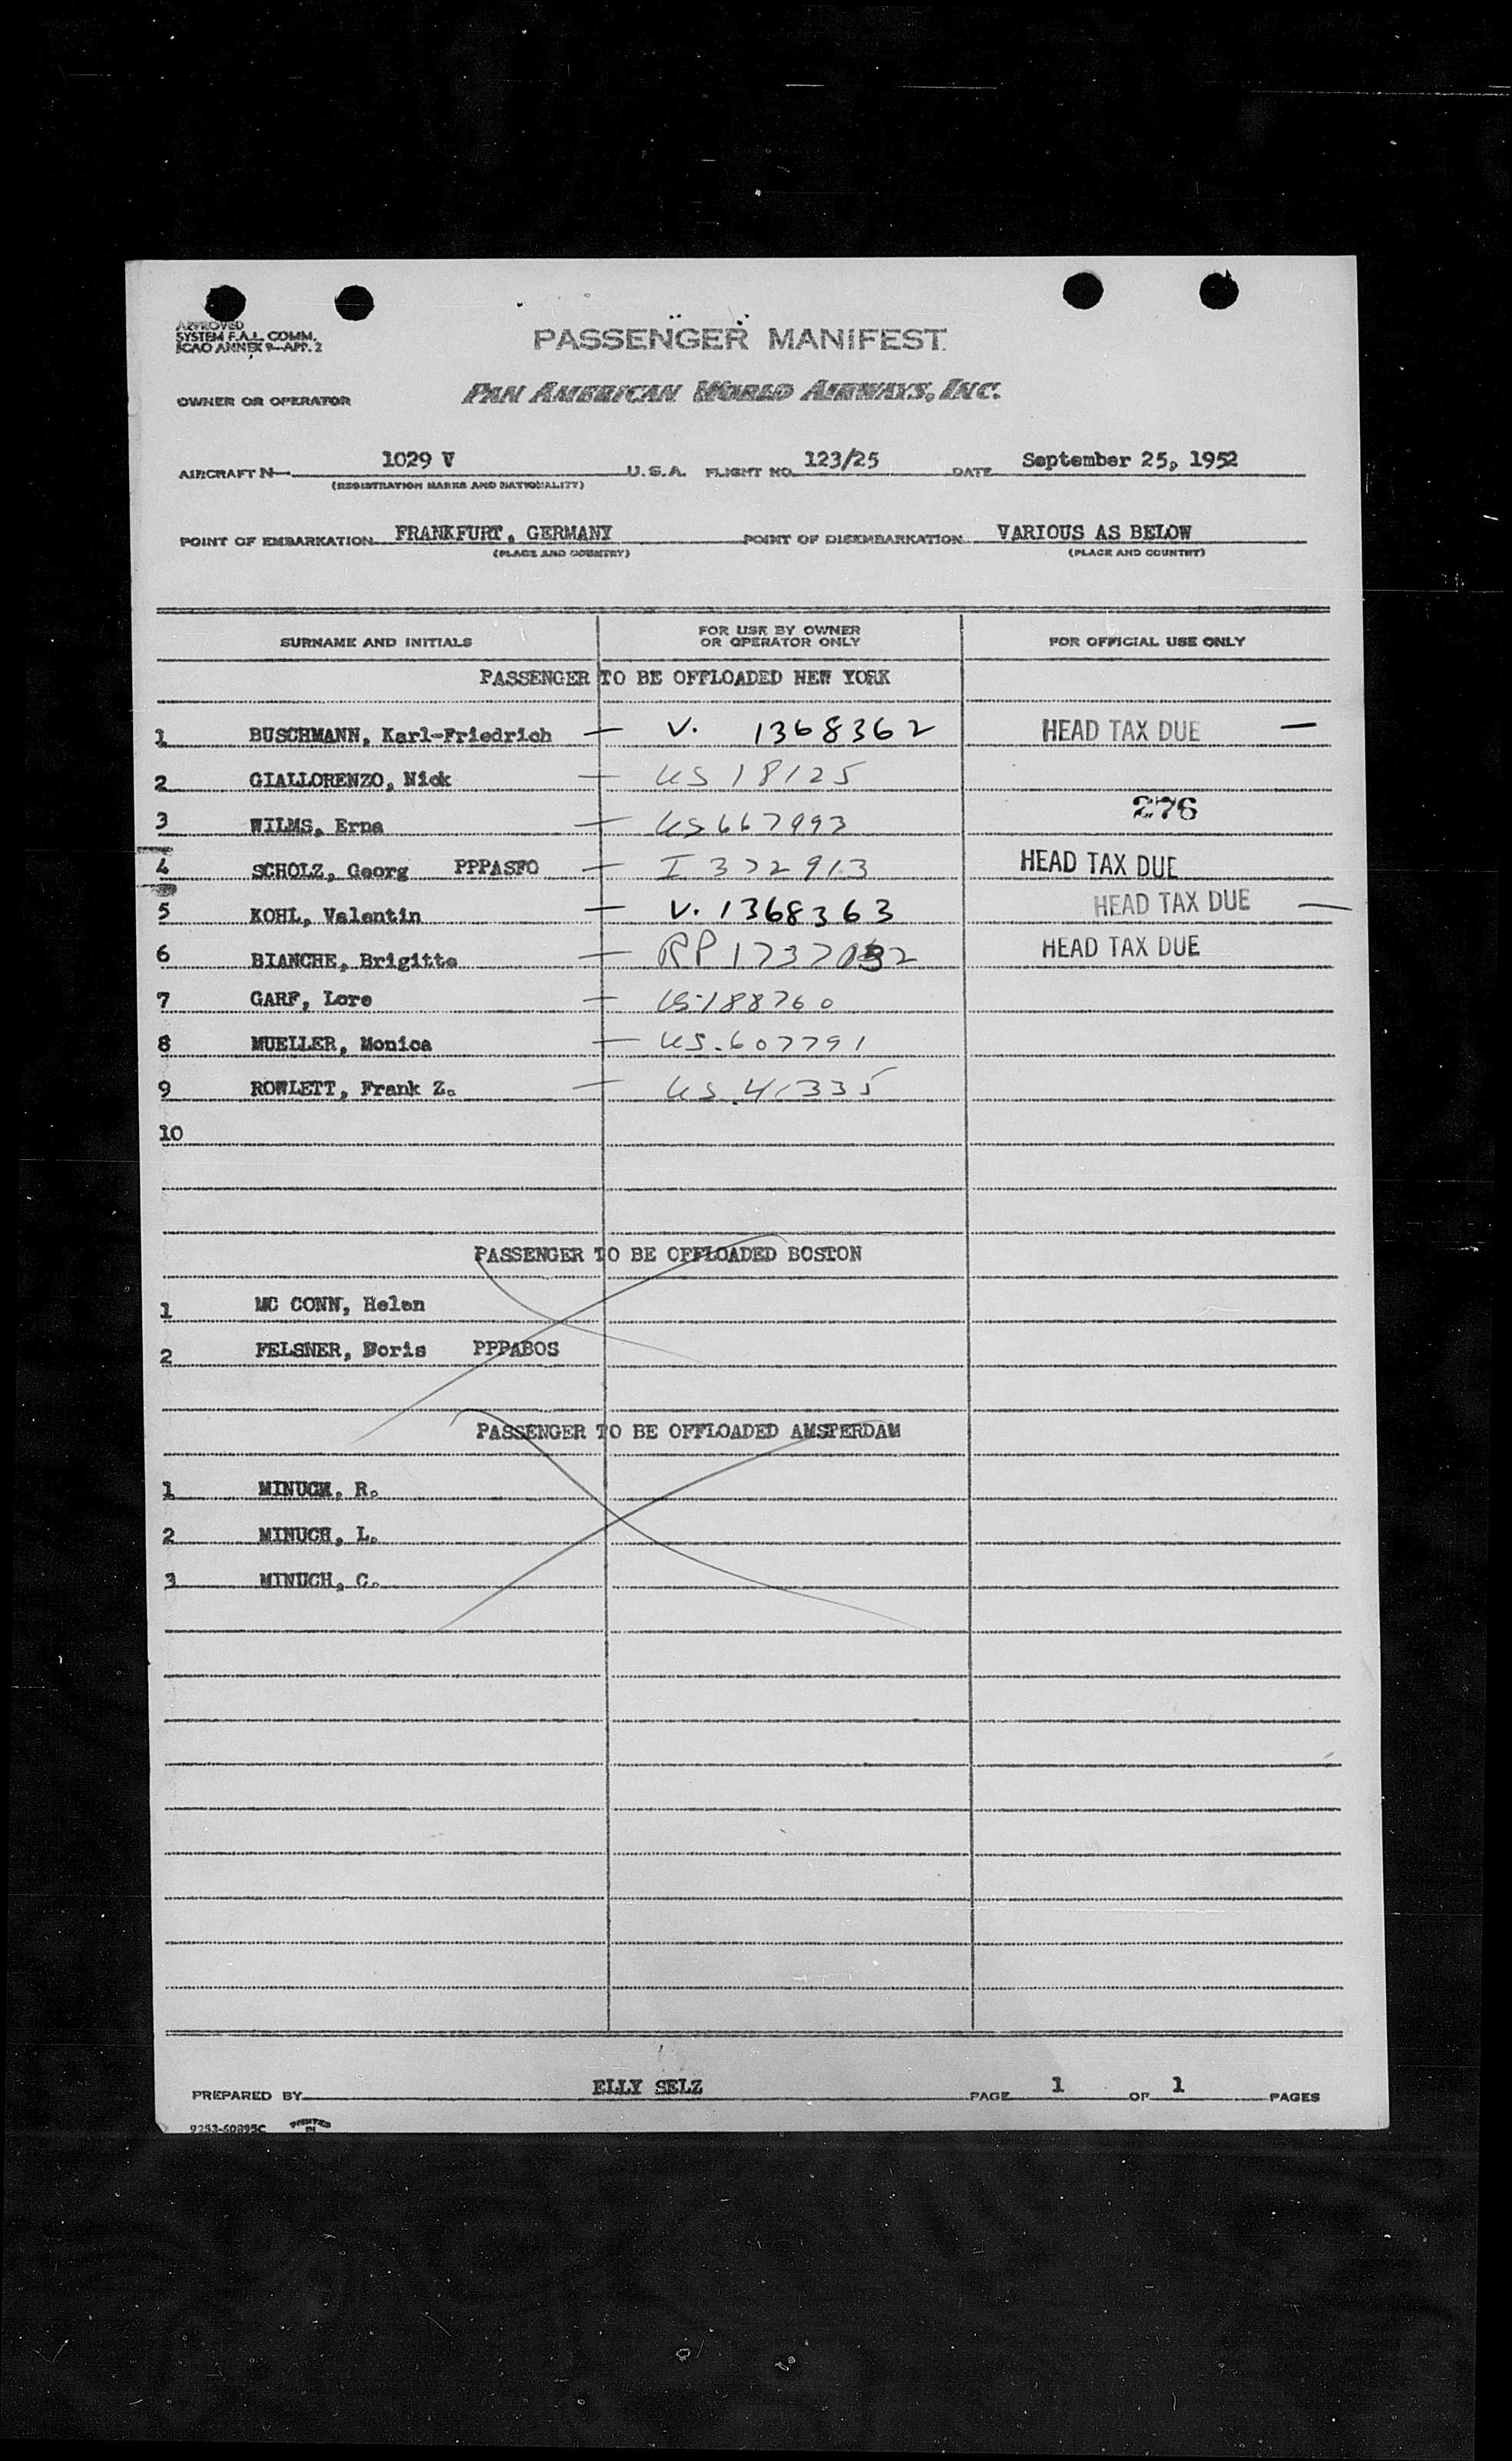 APPROVED
SYSTEM F.A.L. COMM.
ICAO ANNEX 9—APP. 2
PASSENGER MANIFEST
OWNER OR OPERATOR PAN AMERICAN WORLD AIRWAYS, INC.
AIRCRAFT N— 1029 V U.S.A. FLIGHT NO. 123/25 DATE September 25, 1952
(REGISTRATION MARKS AND NATIONALITY)
POINT OF EMBARKATION FRANKFURT, GERMANY POINT OF DISEMBARKATION VARIOUS AS BELOW
(PLACE AND COUNTRY) (PLACE AND COUNTRY)
SURNAME AND INITIALS FOR USE BY OWNER OR OPERATOR ONLY FOR OFFICIAL USE ONLY
PASSENGER TO BE OFFLOADED NEW YORK
1 BUSCHMANN, Karl-Friedrich — V. 1368362 HEAD TAX DUE —
2 GIALLORENZO, Nick — US 18125
276
3 WILMS, Erna — US 667993
4 SCHOLZ, Georg PPPASFO — I 372913 HEAD TAX DUE
5 KOHL, Valentin — V. 1368363 HEAD TAX DUE —
6 BIANCHE, Brigitte — RP HEAD TAX DUE
7 GARF, Lore — US-188760
8 MUELLER, Monica — US.607791
9 ROWLETT, Frank Z. — US.41335
10
PASSENGER TO BE OFFLOADED BOSTON
1 MC CONN, Helen
2 FELSNER, Doris PPPABOS
PASSENGER TO BE OFFLOADED AMSTERDAM
1 MINUCH, R.
2 MINUCH, L.
3 MINUCH, C.
PREPARED BY ELLY SELZ PAGE 1 OF 1 PAGES
9253-60895C PRINTED IN